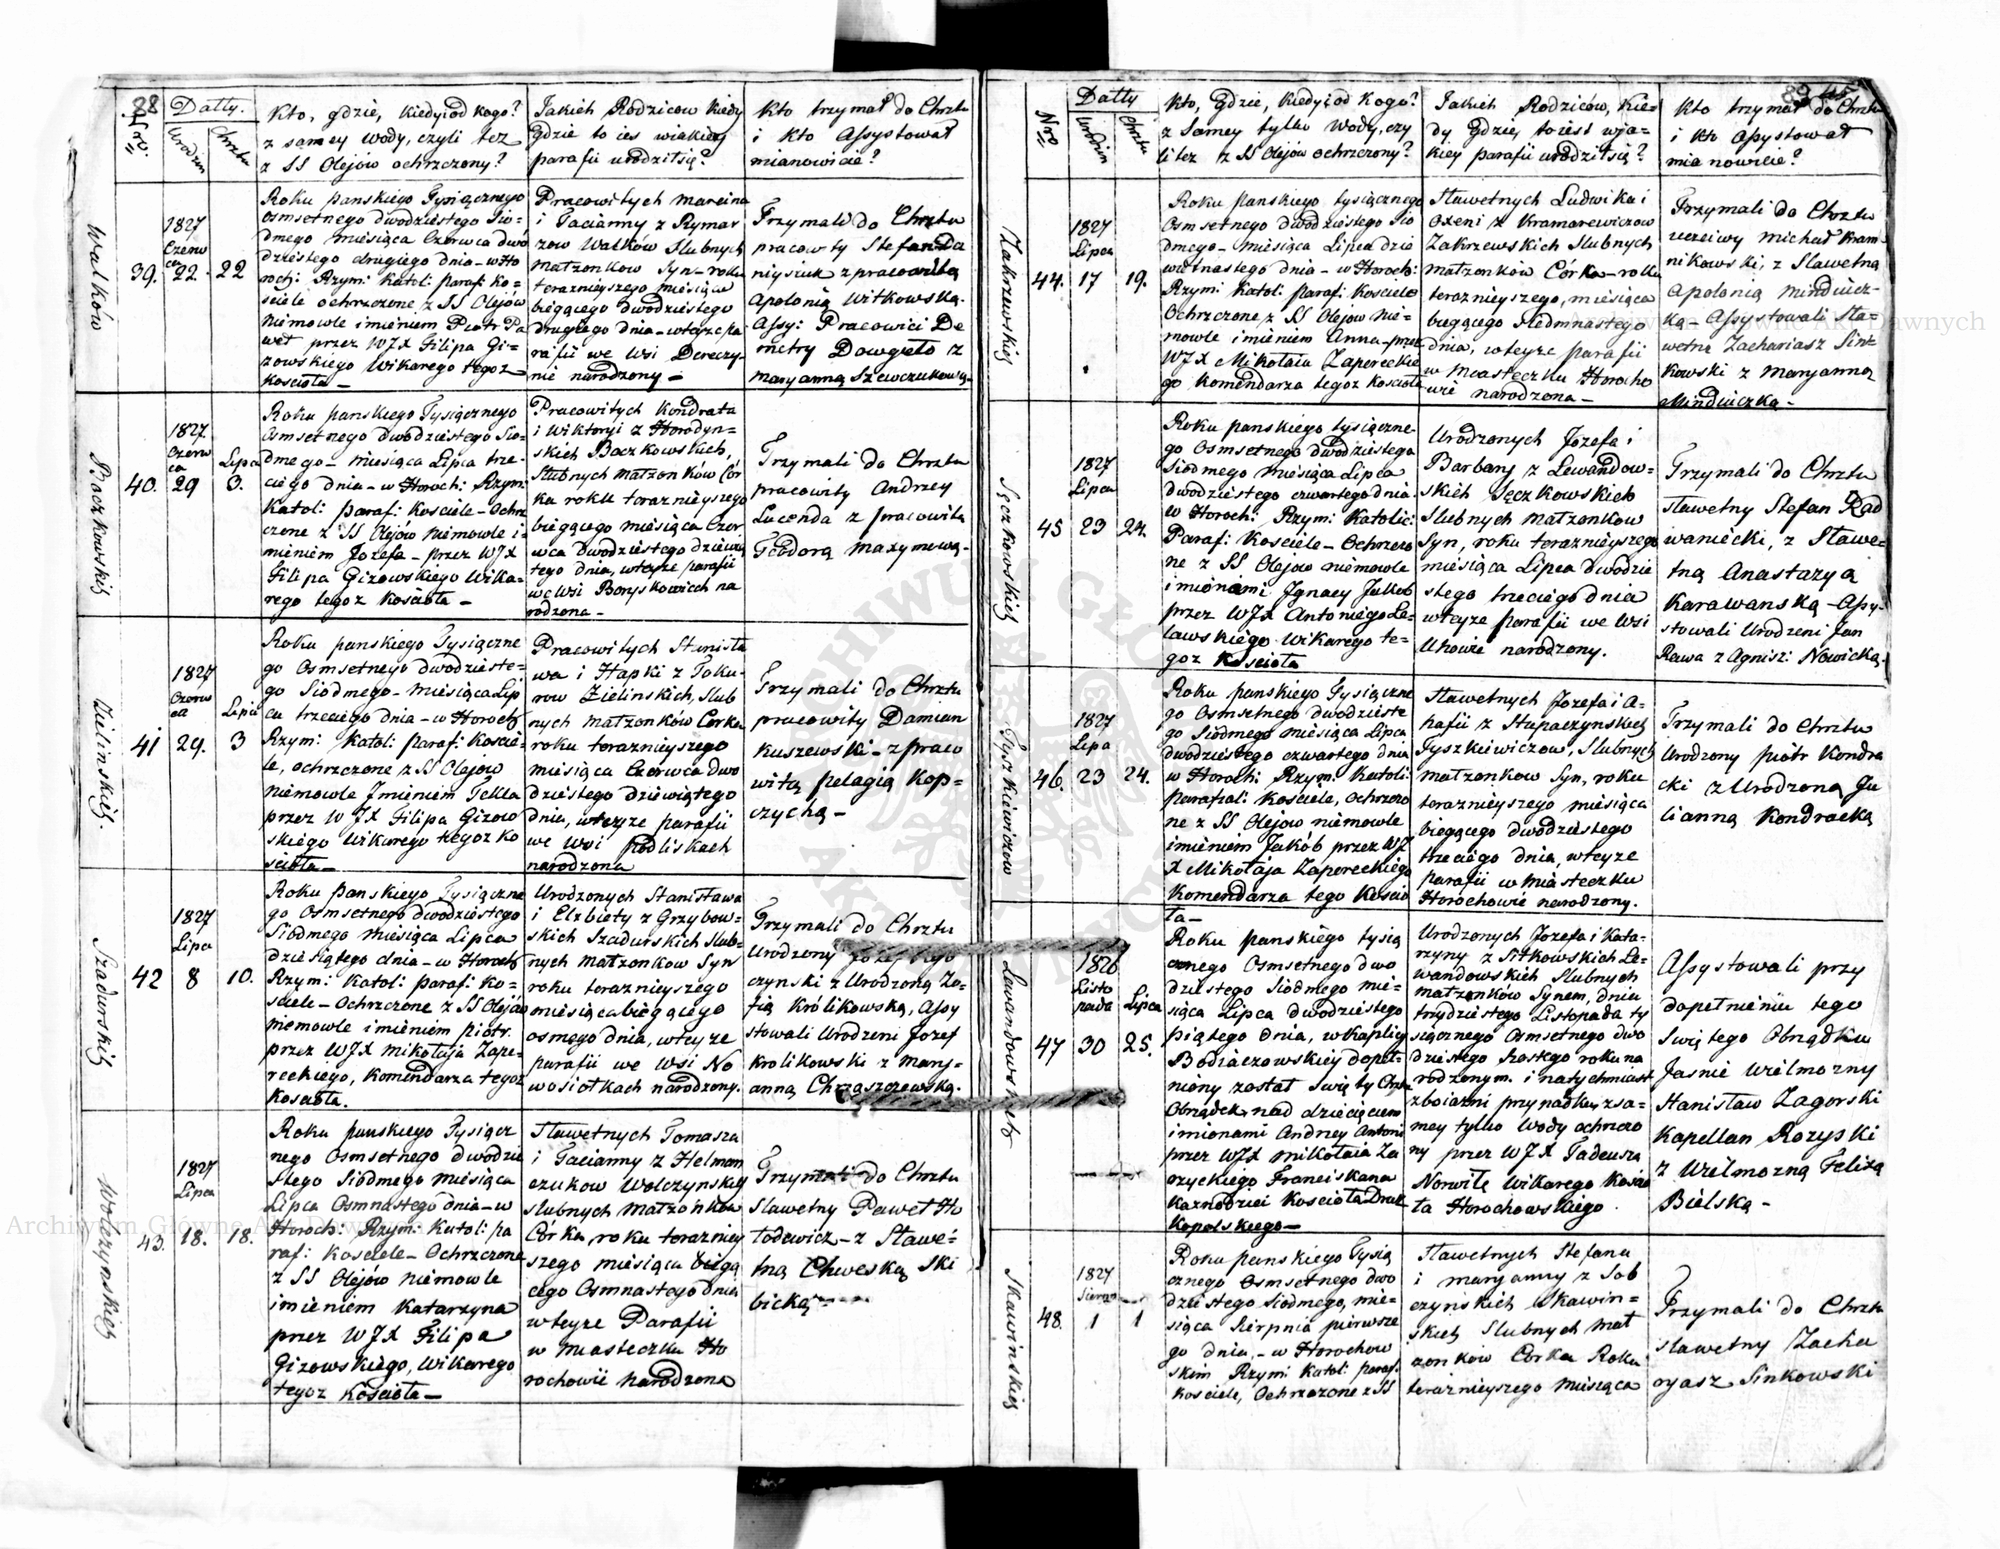 88
Nro.
Datty.
Urodzin
Chrztu
Kto, gdzie, kiedy, i od kogo?
z samey wody, czyli tez
z SS Olejów ochrzczony?
Jakich Rodzicow kiedy
gdzie to ies wiakiey
parafii urodził się?
Kto trzymał do Chrztu
i kto Assystował
mianowicie?
Walków
39.
1827
Czerw
ca
22
22
Roku panskiego Tysiącznego
Osmsetnego dwódziestego Sio-
dmego miesiąca Czerwca dwó
dziestego drugiego dnia - w Ho
roch: Rzym: Katol: parafi: Ko-
sciele ochrzczone z SS Olejów
Niemowle imieniem Piotr Pa
weł przez WJX Filipa Gi-
zowskiego Wikarego tegoz
Kosciola -
Pracowitych Marcina
i Tacianny z Rymar
zow Walków Slubnych
Matzonkow Syn - roku
terazniejszego miesiąca
biegącego dwodziestego
drugiego dnia - wteyze pa
rafii we Wsi Dereczy-
nie narodzony -
Trzymali do Chrztu
pracowity Stefan Da
niysiuk z pracowitą
Apolonią Witkowską.
Assy: Pracowici De
metry Dowgieło z
Maryanną Szewczukową.
Baczkowskiey
40.
1827.
Czerw
ca
29
Lipca
3.
Roku panskiego Tysiącznego
Osmsetnego dwódziestego Sio-
dmego - miesiąca Lipca trze-
ciego dnia - w Horoch: Rzym:
Katol: paraf: Kosciele - Ochrz
czone z SS Olejów Niemowle i-
mieniem Jozefa - przez WJX
Filipa Gizowskiego Wika-
rego tegoz Kosciola -
Pracowitych Kondrata
i Wiktoryi z Horodyn-
skich Baczkowskich,
Slubnych Matzonków Cór
ka roku terazniejszego
biegącego miesiąca Czer
wca dwodziestego dziewią
tego dnia, wteyze parafii
we Wsi Boryskowiczach na
rodzona -
Trzymali do Chrztu
pracowity Andrzey
Lucenda z pracowitą
Teodorą Maxymową.
Zielinskiey.
41
1827
Czerw
ca
29.
Lipca
3
Roku panskiego Tysiączne
go Osmsetnego dwódzieste-
go Siódmego - miesiąca Lip
ca trzeciego dnia - w Horoch
Rzym: Katol: paraf: Koscie-
le, ochrzczone z SS Olejów
Niemowle Jmieniem Tekla
przez WJX Filipa Gizow
skiego Wikarego tegoz Ko
sciola -
Pracowitych Stanisła
wa i Hapki z Toku-
row Zielinskich, Slub
nych Matzonków Corka
roku terazniejszego
miesiąca Czerwca dwo
dziestego dziewiątego
dnia, wteyze parafii
we Wsi Podliskach
narodzona
Trzymali do Chrztu
pracowity Damian
Kuszewski - z praco
witą pelagią Kop-
czychą -
Szadurskiey
42
1827
Lipca
8
10.
Roku panskiego Tysiączne
go Osmsetnego dwódziestego
Siódmego miesiąca Lipca
dziesiątego dnia - w Horoch
Rzym: Katol: paraf: Ko-
sciele - Ochrzczone z SS Olejów
niemowle imieniem piotr.
przez WJX Mikołaja Zape-
reckiego, Komendarza tegoz
Kosciola.
Urodzonych Stanisława
i Elzbiety z Grzybow-
skich Szadurskich Slub-
nych Matzonkow Syn
roku terazniejszego
miesiąca biegącego
osmego dnia, wteyze
parafii we Wsi No
wosiołkach narodzony.
Trzymali do Chrztu
Urodzony Jozef
czynski z Urodzoną Zo-
fią Królikowską, Assy
stowali Urodzeni Jozef
Krolikowski z Mary-
anną Chrząszczewską.
Wolczynskiey
43.
1827
Lipca
18.
18.
Roku panskiego Tysiącz
nego Osmsetnego dwodzie
stego Siódmego miesiąca
Lipca Osmnastego dnia - w
Horoch: Rzym: Katol: pa
raf: Kosciele - Ochrzczone
z SS Olejów niemowle
imieniem Katarzyna
przez WJX Filipa
Gizowskiego, Wikarego
tegoz Kosciola -
Sławetnych Tomasza
i Tacianny z Helman
czukow Wolczynskich
Slubnych Matzonkow
Córka, roku terazniey
szego miesiąca biegą
cego Osmnastego dnia
wteyze Parafii
w miasteczku Ho
rochowie narodzona
Trzymali do Chrztu
Sławetny Paweł Ho
łodewicz - z Sławe-
tną Chweską Ski
bicką
89
Nro
Datty
Urodzin
Chrztu
Kto, Gdzie, kiedy, i od kogo?
z Samey tylko Wody, czy
li tez z SS Olejów ochrzczony?
Jakich Rodziców, Kie-
dy Gdzie, to iest wja-
kiey parafii urodził się?
Kto trzymał do Chrztu
i kto Assystował
mianowicie?
Zakrzewskiey
44.
1827
Lipca
17
19.
Roku panskiego tysiącznego
Osmsetnego dwódziestego Sio
dmego - miesiąca Lipca dzie
więtnastego dnia - w Horoch:
Rzym: Katol: paraf: Kosciele
Ochrzczone z SS Olejow nie-
mowle imieniem Anna - przez
WJX Mikołaia Zapereckie
go Komendarza tegoz Kosciola
Sławetnych Ludwika i
Oxeni z Kramarewiczow
Zakrzewskich Slubnych
Matzonków Córka - roku
terazniejszego, miesiąca
biegącego siedmnastego
dnia, wteyze parafii
w Miasteczku Horocho
wie narodzona -
Trzymali do Chrztu
uczciwy Michał Kram-
nikowski, z Sławetną
Apolonią Mindwicz-
ką - Assystowali Sła-
wetni Zachariasz Sin-
kowski z Maryanną
Mindwiczką -
Sęczkowskiey
45
1827
Lipca
23
24.
Roku panskiego tysiączne-
go Osmsetnego dwodziestego
Siodmego miesiąca Lipca
dwodziestego czwartego dnia
w Horoch: Rzym: Katolic:
Paraf: Kosciele - Ochrzczo
ne z SS Olejow niemowle
imionami Jgnacy Jakob
przez WJX Antoniego Le-
lawskiego Wikarego te-
goz Kosciola
Urodzonych Jozefa i
Barbary z Lewandow-
skich Sęczkowskich
Slubnych Matzonkow
Syn, roku terazniejszego
miesiąca Lipca dwodzie
stego trzeciego dnia
wteyze parafii we Wsi
Uhowie narodzony.
Trzymali do Chrztu
Sławetny Stefan Rad
waniecki, z Sławe-
tną Anastazyą
Karawanską - Assy-
stowali Urodzeni Jan
Rawa z Agnisz: Nowicką.
Tyszkiewiczow
46.
1827
Lipca
23
24.
Roku panskiego Tysiączne
go Osmsetnego dwódzieste
go Siodmego miesiąca Lipca
dwodziestego czwartego dnia
w Horoch: Rzym: Katol:
parafial: Kosciele, ochrzczo
ne z SS Olejow niemowle
imieniem Jakób przez WJ
X Mikołaja Zapereckiego
Komendarza tego Koscio
ła -
Sławetnych Jozefa i A-
hafii z Stupaczynskich
Tyszkiewiczow, Slubnych
Matzonkow Syn, roku
terazniejszego miesiąca
biegącego dwodziestego
trzeciego dnia, wteyze
parafii w miasteczku
Horochowie narodzony.
Trzymali do Chrztu
Urodzony piotr Kondra
cki z Urodzoną Ju
lianną Kondracką
Lewandowskich
47
1826
Listo
pada
30
Lipca
25.
Roku panskiego tysią
cznego Osmsetnego dwo
dziestego Siodmego mie-
siąca Lipca dwodziestego
piątego dnia, w Kaplicy
Bodiaczowskiey dopeł-
niony został Swięty Chrztu
Obrządek, nad dziecięciem
imionami Andrzey Antoni
przez WJX Mikołaia Za
Franciszkana
Kaznodziei Kosciola Druz
kopolskiego -
Urodzonych Jozefa i Kata-
rzyny z Sitkowskich Le-
wandowskich Slubnych
matzonków Synem, dnia
trzydziestego Listopada ty
siącznego Osmsetnego dwo
dziestego Szostego roku na
rodzonym. i natychmiast
z boiazni przypadku, z sa-
mey tylko wody ochrzczo
ny przez WJX Tadeusza
Norwiłę Wikarego Koscio
ła Horochowskiego.
Assystowali przy
dopełnieniu tego
Swiętego Obrządku
Jasnie Wielmozny
Stanisław Zagorski
Kapellan Rozyski
z Wielmozną Felixą
Bielską -
Skawinskiey
48.
1827
Sierp
1
1
Roku panskiego Tysią
cznego Osmsetnego dwo
dziestego Siodmego, mie-
siąca Sierpnia pierwsze
go dnia, - w Horochow
skim Rzym: Katol: paraf:
Kosciele, Ochrzczone z SS
Sławetnych Stefana
i Maryanny z Sob
czynskich Skawin-
skich Slubnych Mat
zonków Córka Roku
terazniejszego miesiąca
Trzymali do Chrztu
sławetny Zacha
ryasz Sinkowski
Archiwum Główne Akt Dawnych